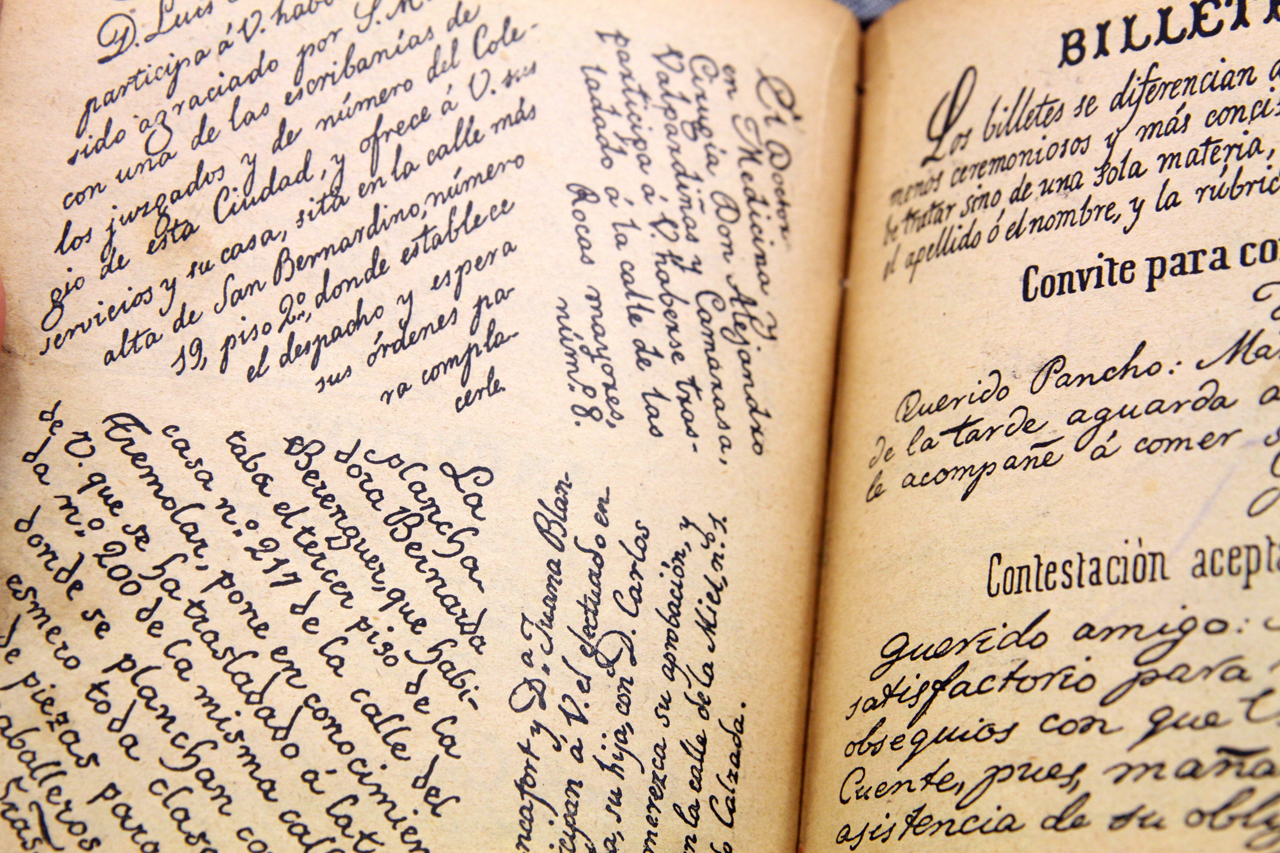 D. Luis
participa á V. habe
sido agraciado por S. M.
con una de las escribanías de
los juzgados y de número del Cole-
gio de esta Ciudad, y ofrece á V. sus
servicios y su casa, sita en la calle más
alta de San Bernardino, número
19, piso 2º, donde establece
el despacho y espera
sus órdenes pa-
ra compla-
cerle.
El Doctor
en Medicina y
Cirugía Don Alejandro
Valpardiñas y Camarasa,
participa á V. haberse tras-
ladado á la calle de las
Rocas mayores,
núm.º 8.
La
plancha-
dora Bernarda
Berenguer, que habi-
taba el tercer piso de la
casa n.º 217 de la calle del
Tremolar, pone en conocimien
de V. que se ha trasladado á la ti
da n.º 200 de la misma call
donde se planchan co
esmero toda clas
de piezas para
aballeros
ñras
D.ª Juana Blan-
ncafort y
icipan á V. el efectuado en-
a, su hija, con D. Carlos
merezca su aprobación, y
n la calle de la Miel, n.º 1.
Calzada.
BILLETE
Los billetes se diferencian
menos ceremoniosos y más conci
be tratar sino de una sola materia,
el apellido ó el nombre, y la rúbric
Convite para co
Querido Pancho: Ma
de la tarde aguarda a
le acompañe á comer
Contestación acepta
Querido amigo:
satisfactorio para
obsequios con que
Cuente, pues, mañana
asistencia de su oblig